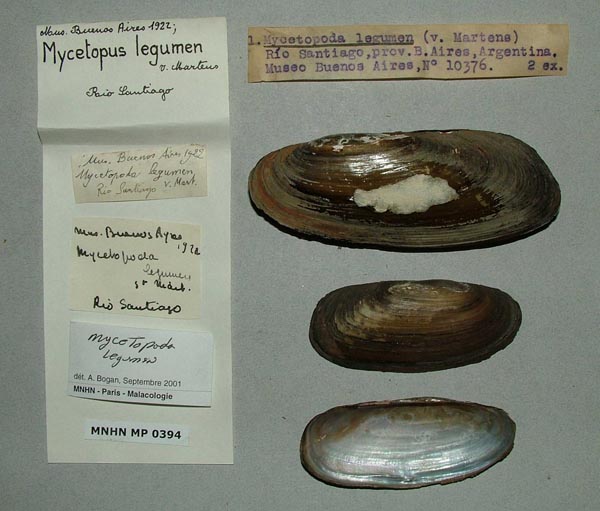 Mus. Buenos Aires 1922;
Mycetopus legumen
v. Martens
Rio Santiago
Mus. Buenos Aires 1922
Mycetopoda legumen,
v. Mart.
Rio Santiago
Mus. Buenos Ayres
1922
Mycetopoda
legumen
Mart.
Rio Santiago
Mycetopoda
legumen
dét. A. Bogan, Septembre 2001
MNHN - Paris - Malacologie
MNHN MP 0394
1. Mycetopoda legumen (v. Martens)
Río Santiago,prov.B.Aires,Argentina.
Museo Buenos Aires,Nº 10376. 2 ex.